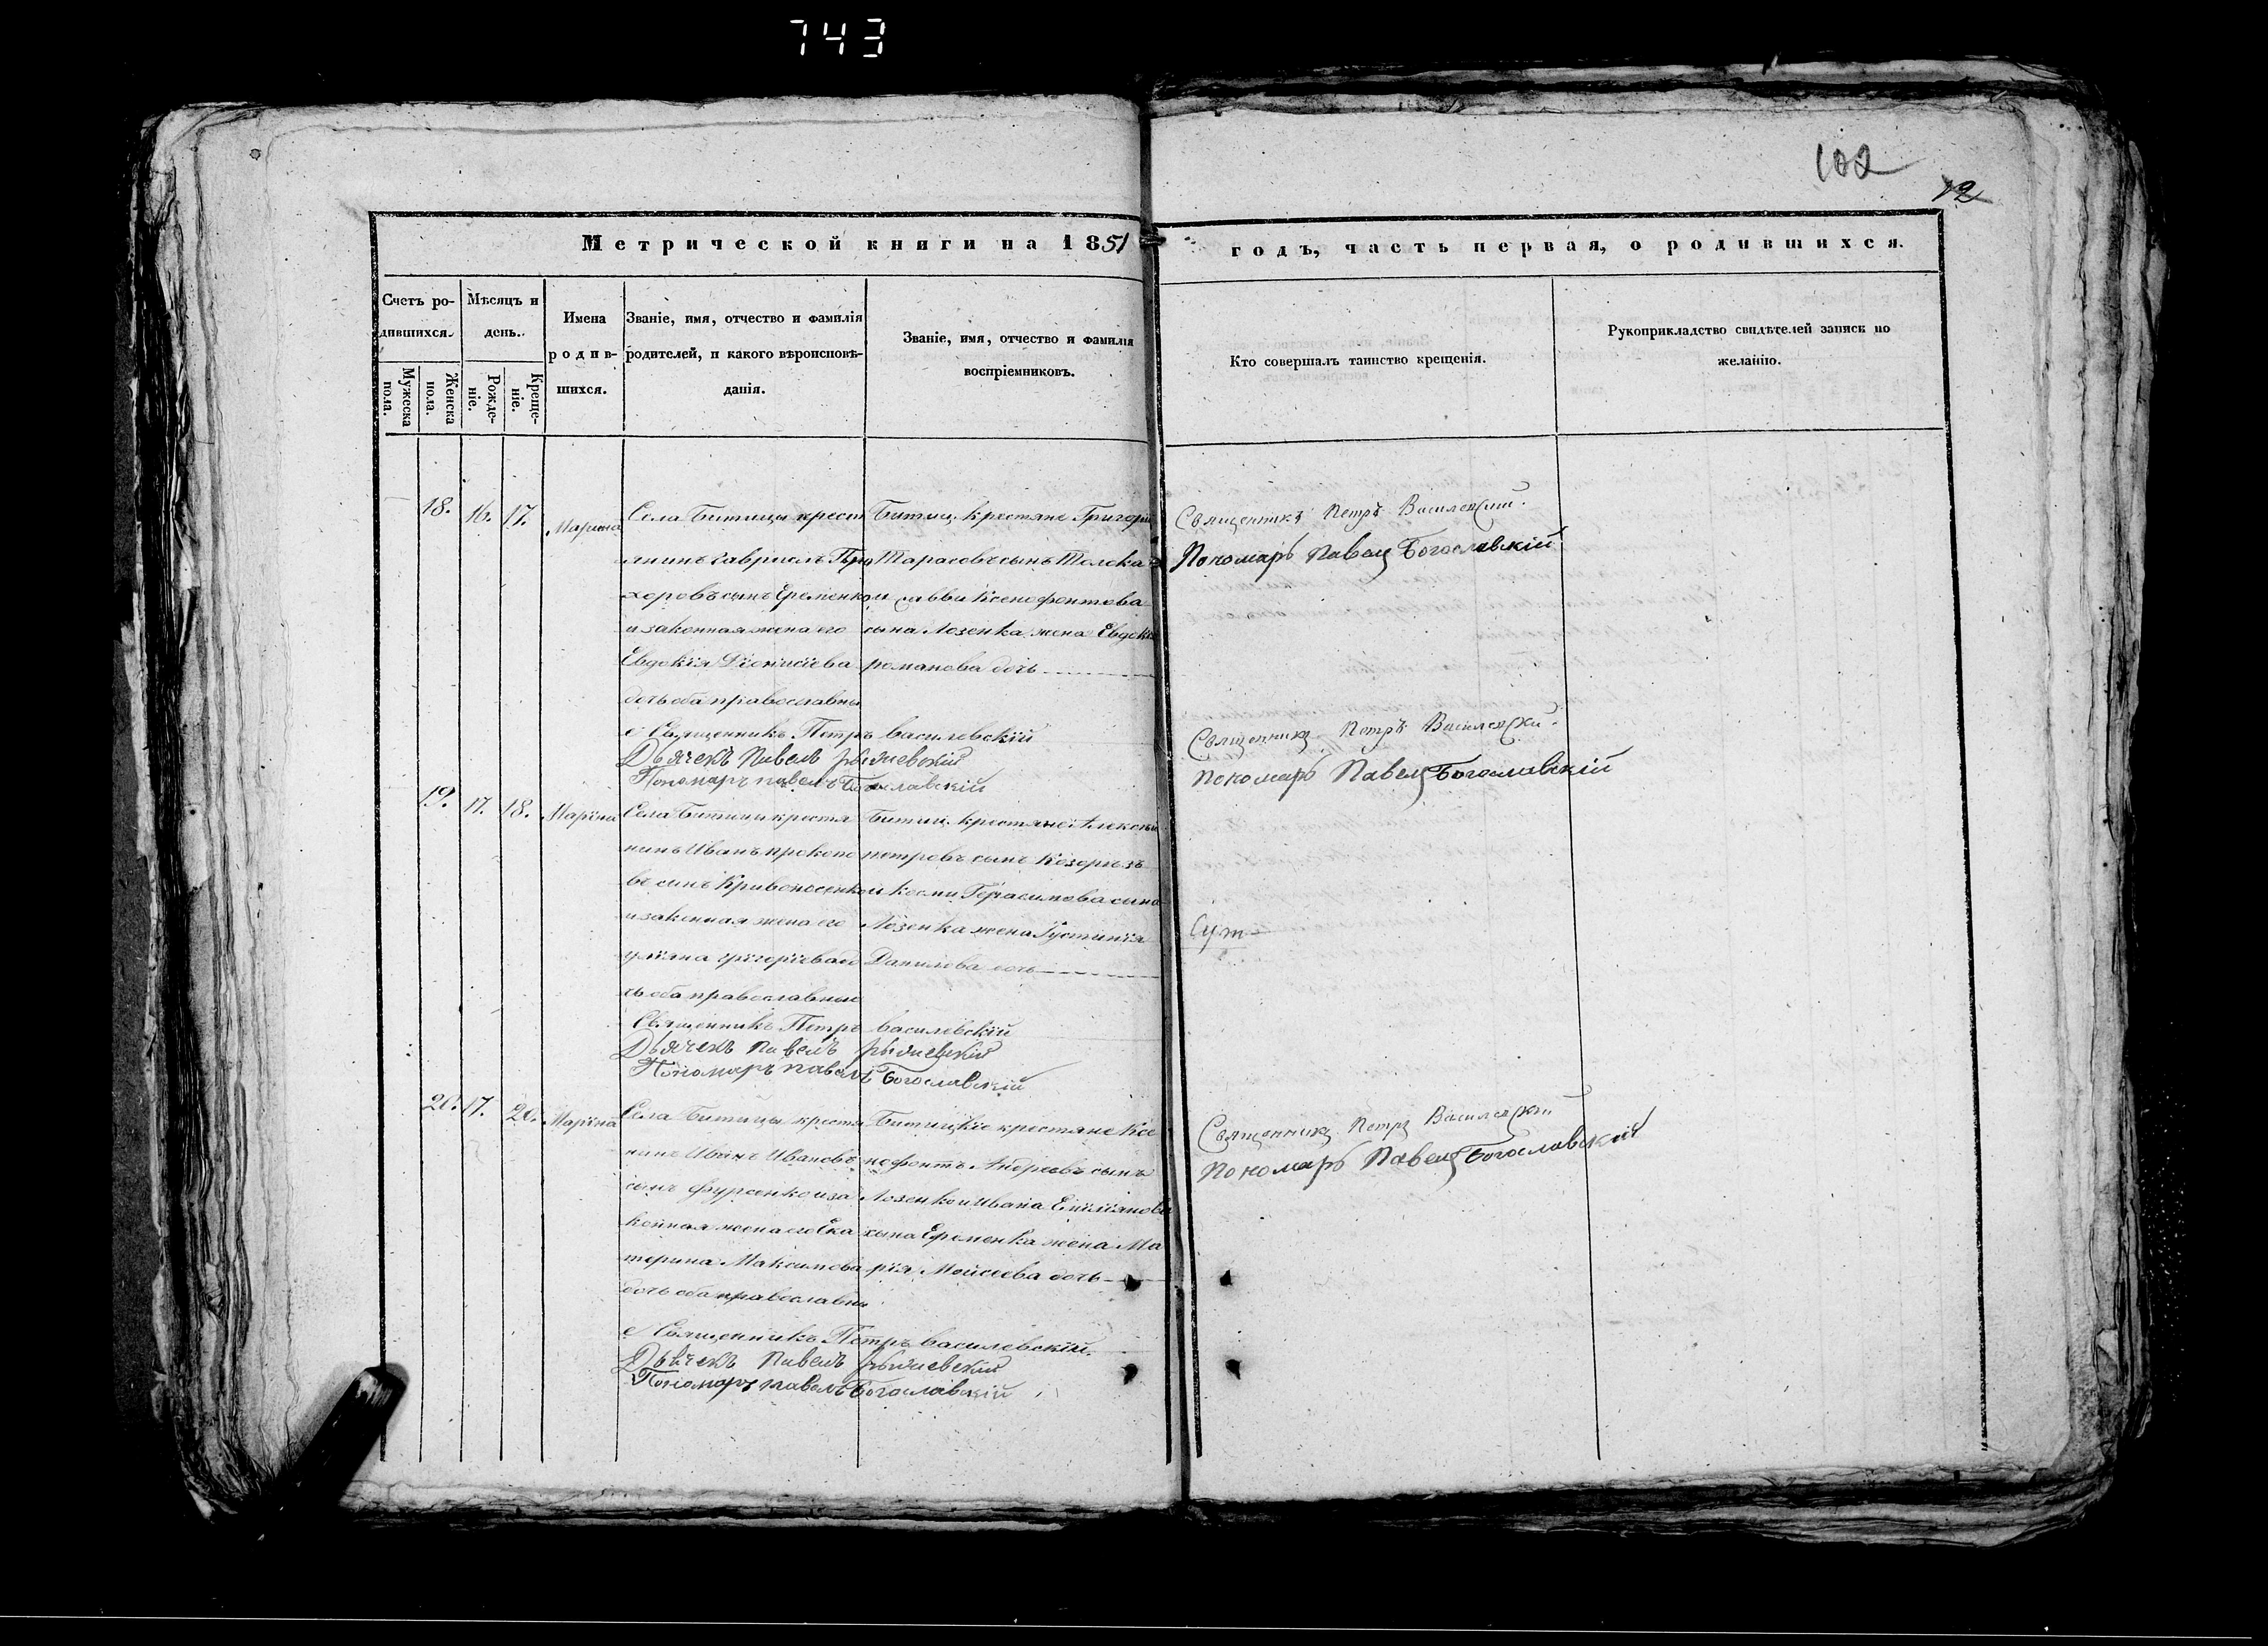 743
102
12
Метрической книги на 1851
годъ, часть первая, о родившихся.
Счетъ ро-
дившихся.
Мужеска
пола.
Женска
пола.
Мѣсяцъ и
день.
Рожде-
ніе.
Креще-
ніе.
Имена
родив-
шихся.
Званіе, имя, отчество и фамилія
родителей, и какого вѣроисповѣ-
данія.
Званіе, имя, отчество и фамилія
воспріемниковъ.
Кто совершалъ таинство крещенія.
Рукоприкладство свидѣтелей записи по
желанію.
18. 16. 17. Марина
Села Битицы крестъ
янинъ Гавриилъ Про
хоровъ сынъ Еременко
и законная жена его
Евдокія Діонисіева
дочь оба православны
е
Битиц. крестяне Григорій
Тарасовъ сынъ Толока
и Саввы Ксенофонтова
сына Лозенка жена Евдокія
романова дочь
Священникъ Петръ Василевскій
Дьячекъ Павелъ
Пономаръ павелъ Богославскій
Священникъ Петръ Василевскій.
Пономаръ Павелъ Богославскій
19. 17. 18. Маріна
Села Битицы крестя
нинъ Иванъ прокопо
въ сынъ Кривоносенко
и законная жена его
уліяна григоріева до
чь оба православные
Битиц. крестяне Алексѣй
петровъ сынъ
и космы Герасимова сына
Лозенка жена Густинія
Данилова дочь
Священникъ Петръ василевскій
Дьячекъ Павелъ
Пономаръ павелъ Богославскій
Священникъ Петръ Василевскій.
Пономаръ Павелъ Богославскій
20. 17. 20. Маріна
Села Битицы крестя
нинъ Иванъ Ивановъ
сынъ Фурсенко и за
конная жена его Ека
терина Максимова
дочь оба православны
е
Битицкіе крестяне Ксе
нофонтъ Андреевъ сынъ
Лозенко и Ивана Еміліянова
сына Еременка жена Ма
рія Моисеева дочь
Священникъ Петръ василевскій.
Дьячекъ Павелъ
Пономаръ павелъ Богославскій
Священникъ Петръ Василевскій
Пономаръ Павелъ Богославскій